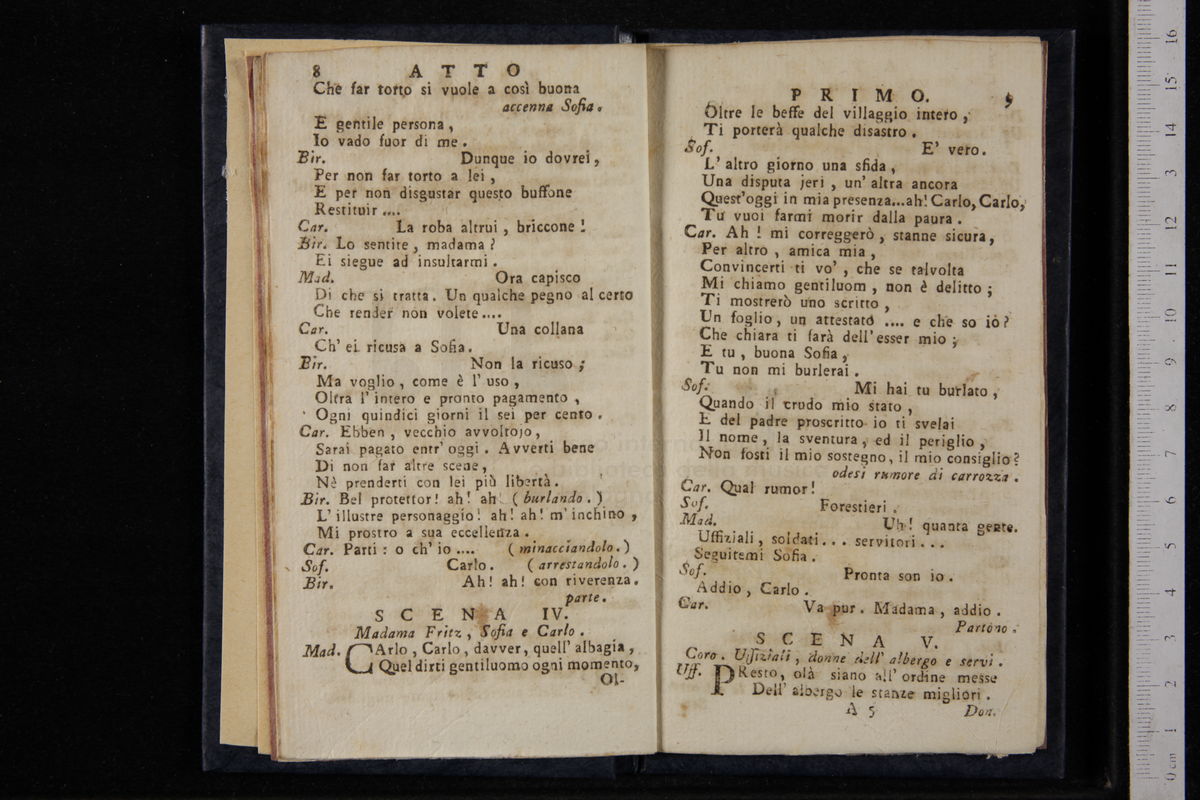 8 ATTO
Che far torto si vuole a così buona
accenna Sofia.
E gentile persona,
Io vado fuor di me.
Bir. Dunque io dovrei,
Per non far torto a lei,
E per non disgustar questo buffone
Restituir ....
Car. La roba altrui, briccone!
Bir. Lo sentite, madama?
Ei siegue ad insultarmi.
Mad. Ora capisco
Di che si tratta. Un qualche pegno al certo
Che render non volete....
Car. Una collana
Ch' ei ricusa a Sofia.
Bir. Non la ricuso;
Ma voglio, come è l' uso,
Oltra l' intero e pronto pagamento,
Ogni quindici giorni il sei per cento.
Car. Ebben, vecchio avvoltojo,
Sarai pagato entr' oggi. Avverti bene
Di non far altre scene,
Nè prenderti con lei più libertà.
Bir. Bel protettor! ah! ah! (burlando.)
L' illustre personaggio! ah! ah! m' inchino,
Mi prostro a sua eccellenza.
Car. Parti: o ch' io .... (minacciandolo.)
Sof. Carlo. (arrestandolo.)
Bir. Ah! ah! con riverenza.
parte.
SCENA IV.
Madama Fritz, Sofia e Carlo.
Mad. CArlo, Carlo, davver, quell' albagia,
Quel dirti gentiluomo ogni momento,
Ol-
PRIMO. 9
Oltre le beffe del villaggio intero,
Ti porterà qualche disastro.
Sof. E' vero.
L' altro giorno una sfida,
Una disputa jeri, un' altra ancora
Quest' oggi in mia presenza...ah! Carlo, Carlo,
Tu vuoi farmi morir dalla paura.
Car. Ah! mi correggerò, stanne sicura,
Per altro, amica mia,
Convincerti ti vo', che se talvolta
Mi chiamo gentiluom, non è delitto;
Ti mostrerò uno scritto,
Un foglio, un attestato .... e che so io?
Che chiara ti farà dell' esser mio;
E tu, buona Sofia,
Tu non mi burlerai.
Sof. Mi hai tu burlato,
Quando il crudo mio stato,
E del padre proscritto io ti svelai
Il nome, la sventura, ed il periglio,
Non fosti il mio sostegno, il mio consiglio?
odesi rumore di carrozza.
Car. Qual rumor!
Sof. Forestieri.
Mad. Uh! quanta gente.
Uffiziali, soldati... servitori...
Seguitemi Sofia.
Sof. Pronta son io.
Addio, Carlo.
Car. Va pur. Madama, addio.
Partono.
SCENA V.
Coro. Uffiziali, donne dell' albergo e servi.
Uff. PResto, olà siano all' ordine messe
Dell' albergo le stanze migliori.
A 5 Don.
0 cm 1 2 3 4 5 6 7 8 9 10 11 12 3 14 15 16